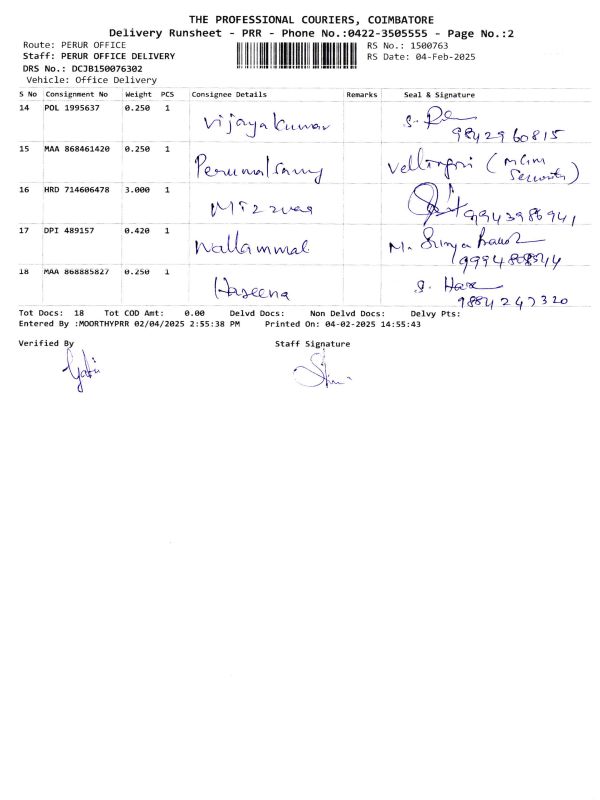 THE PROFESSIONAL COURIERS, COIMBATORE
Delivery Runsheet - PRR - Phone No.:0422-3505555 - Page No.:2
Route: PERUR OFFICE RS No.: 1500763
Staff: PERUR OFFICE DELIVERY RS Date: 04-Feb-2025
DRS No.: DCJB150076302
Vehicle: Office Delivery
S No Consignment No Weight PCS Consignee Details Remarks Seal & Signature
14 POL 1995637 0.250 1 Vijayakumar
9842960815
15 MAA 868461420 0.250 1 Perumalsamy Vellingiri (
Security)
16 HRD 714606478 3.000 1 9943986941
17 DPI 489157 0.420 1 Nallammal M.
18 MAA 868885827 0.250 1 Haseena S.
9884247320
Tot Docs: 18 Tot COD Amt: 0.00 Delvd Docs: Non Delvd Docs: Delvy Pts:
Entered By :MOORTHYPRR 02/04/2025 2:55:38 PM Printed On: 04-02-2025 14:55:43
Verified By Staff Signature